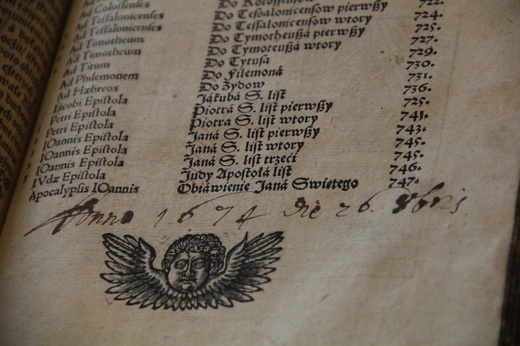 Ad Colossenses Do Kolossensow 722.
Ad Tessalonicenses Do Tessalonicensow pierwßy 724.
Ad Tessalonicenses Do Tessalonicensow wtory 725.
Ad Timotheum Do Tymotheußá pierwßy 727.
Ad Timotheum Do Tymoteußá wtory 729.
Ad Titum Do Tytusá 730.
Ad Philemonem Do Filemoná 731.
Ad Hæbreos Do Żydow 736.
Iacobi Epistola Jákubá S. list 725.
Petri Epistola Piotrá S. list pierwßy 741.
Petri Epistola Piotrá S. list wtory 743.
IOannis Epistola Janá S. list pierwßy 745.
IOannis Epistola Janá S. list wtory 745.
IOannis Epistola Janá S. list trzeci 745.
IVdæ Epistola Judy Apostołá list 746.
Apocalypsis IOannis Obiáwienie Janá Swietego 747.
Anno 1674 die 26.